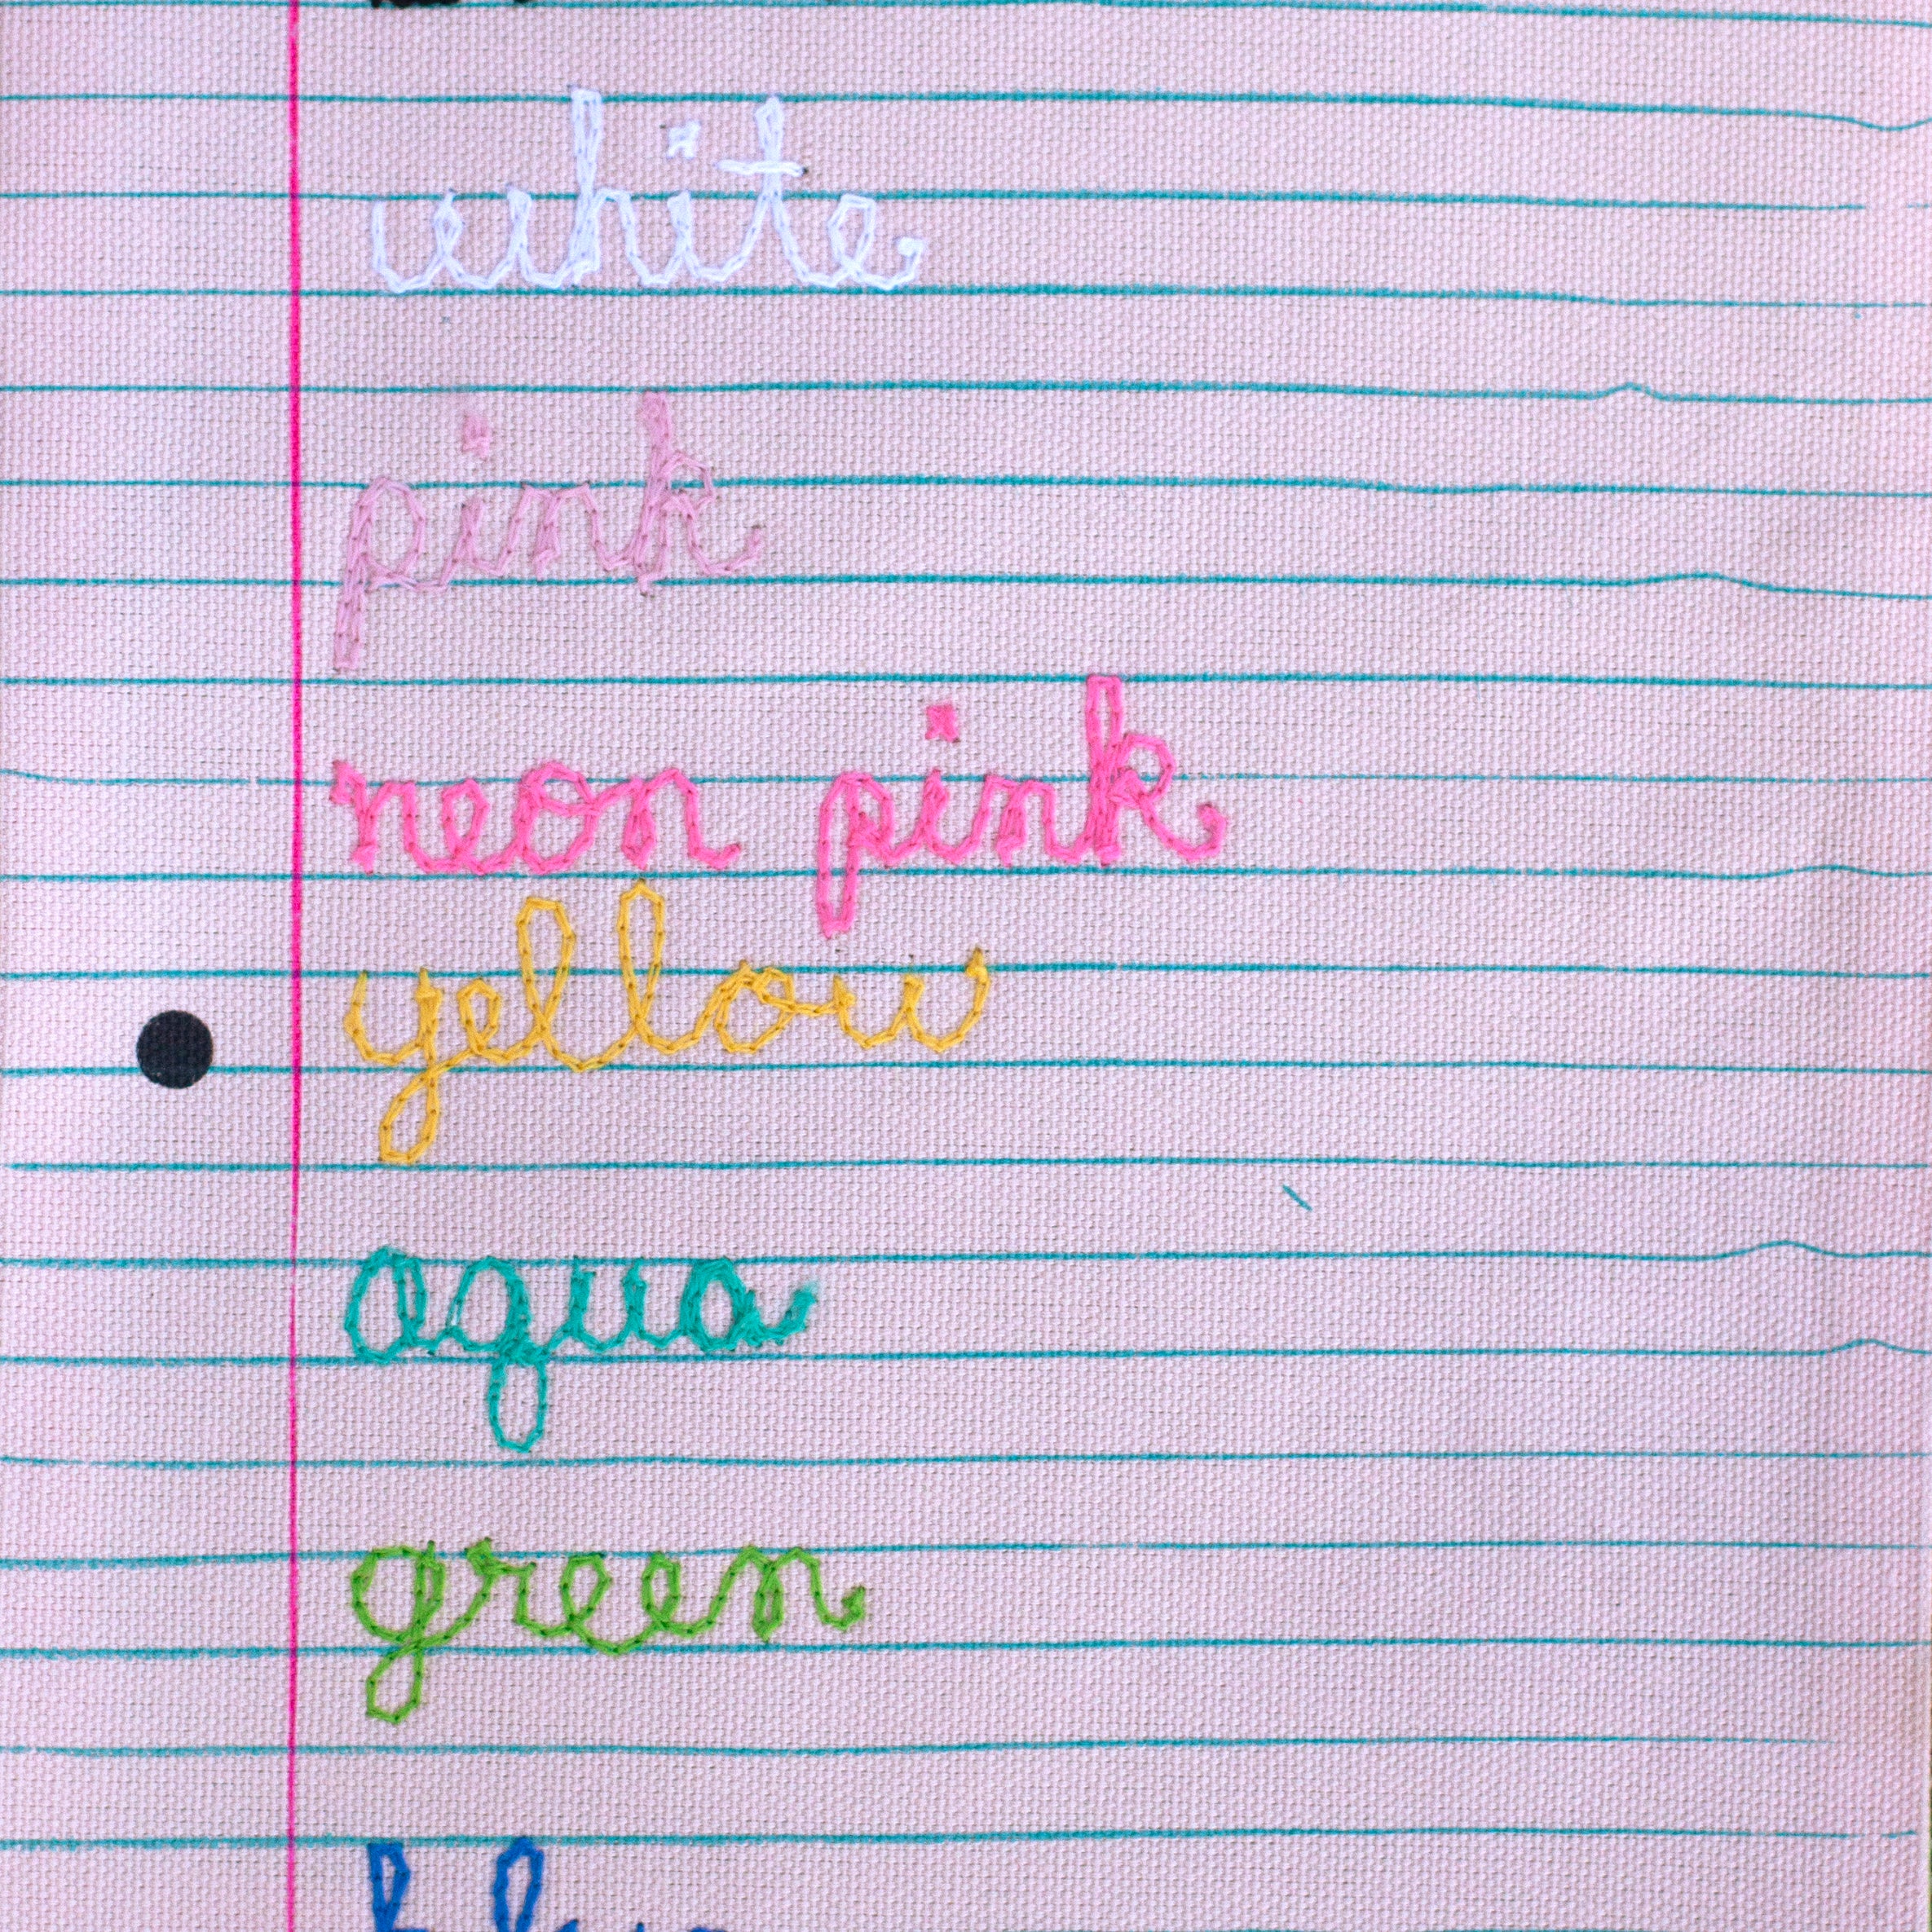 white
pink
neon pink
yellow
aqua
green